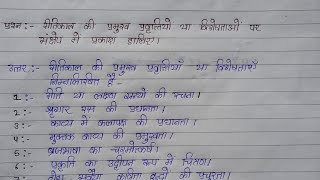 प्रश्न:- रीतिकाल की प्रमुख प्रवृत्तियों या विशेषताओं पर
संक्षेप में प्रकाश डालिए।
उत्तर:- रीतिकाल की प्रमुख प्रवृत्तियाँ या विशेषताएँ
निम्नलिखित हैं-
1:- रीति या लक्षण ग्रन्थों की रचना।
2:- श्रृंगार रस की प्रधानता।
3:- काव्य में कलापक्ष की प्रधानता।
4:- मुक्तक काव्य की प्रमुखता।
5:- ब्रजभाषा का चरमोत्कर्ष।
6:- प्रकृति का उद्दीपन रूप में चित्रण।
7:- सवैया कवित्त की प्रचुरता।